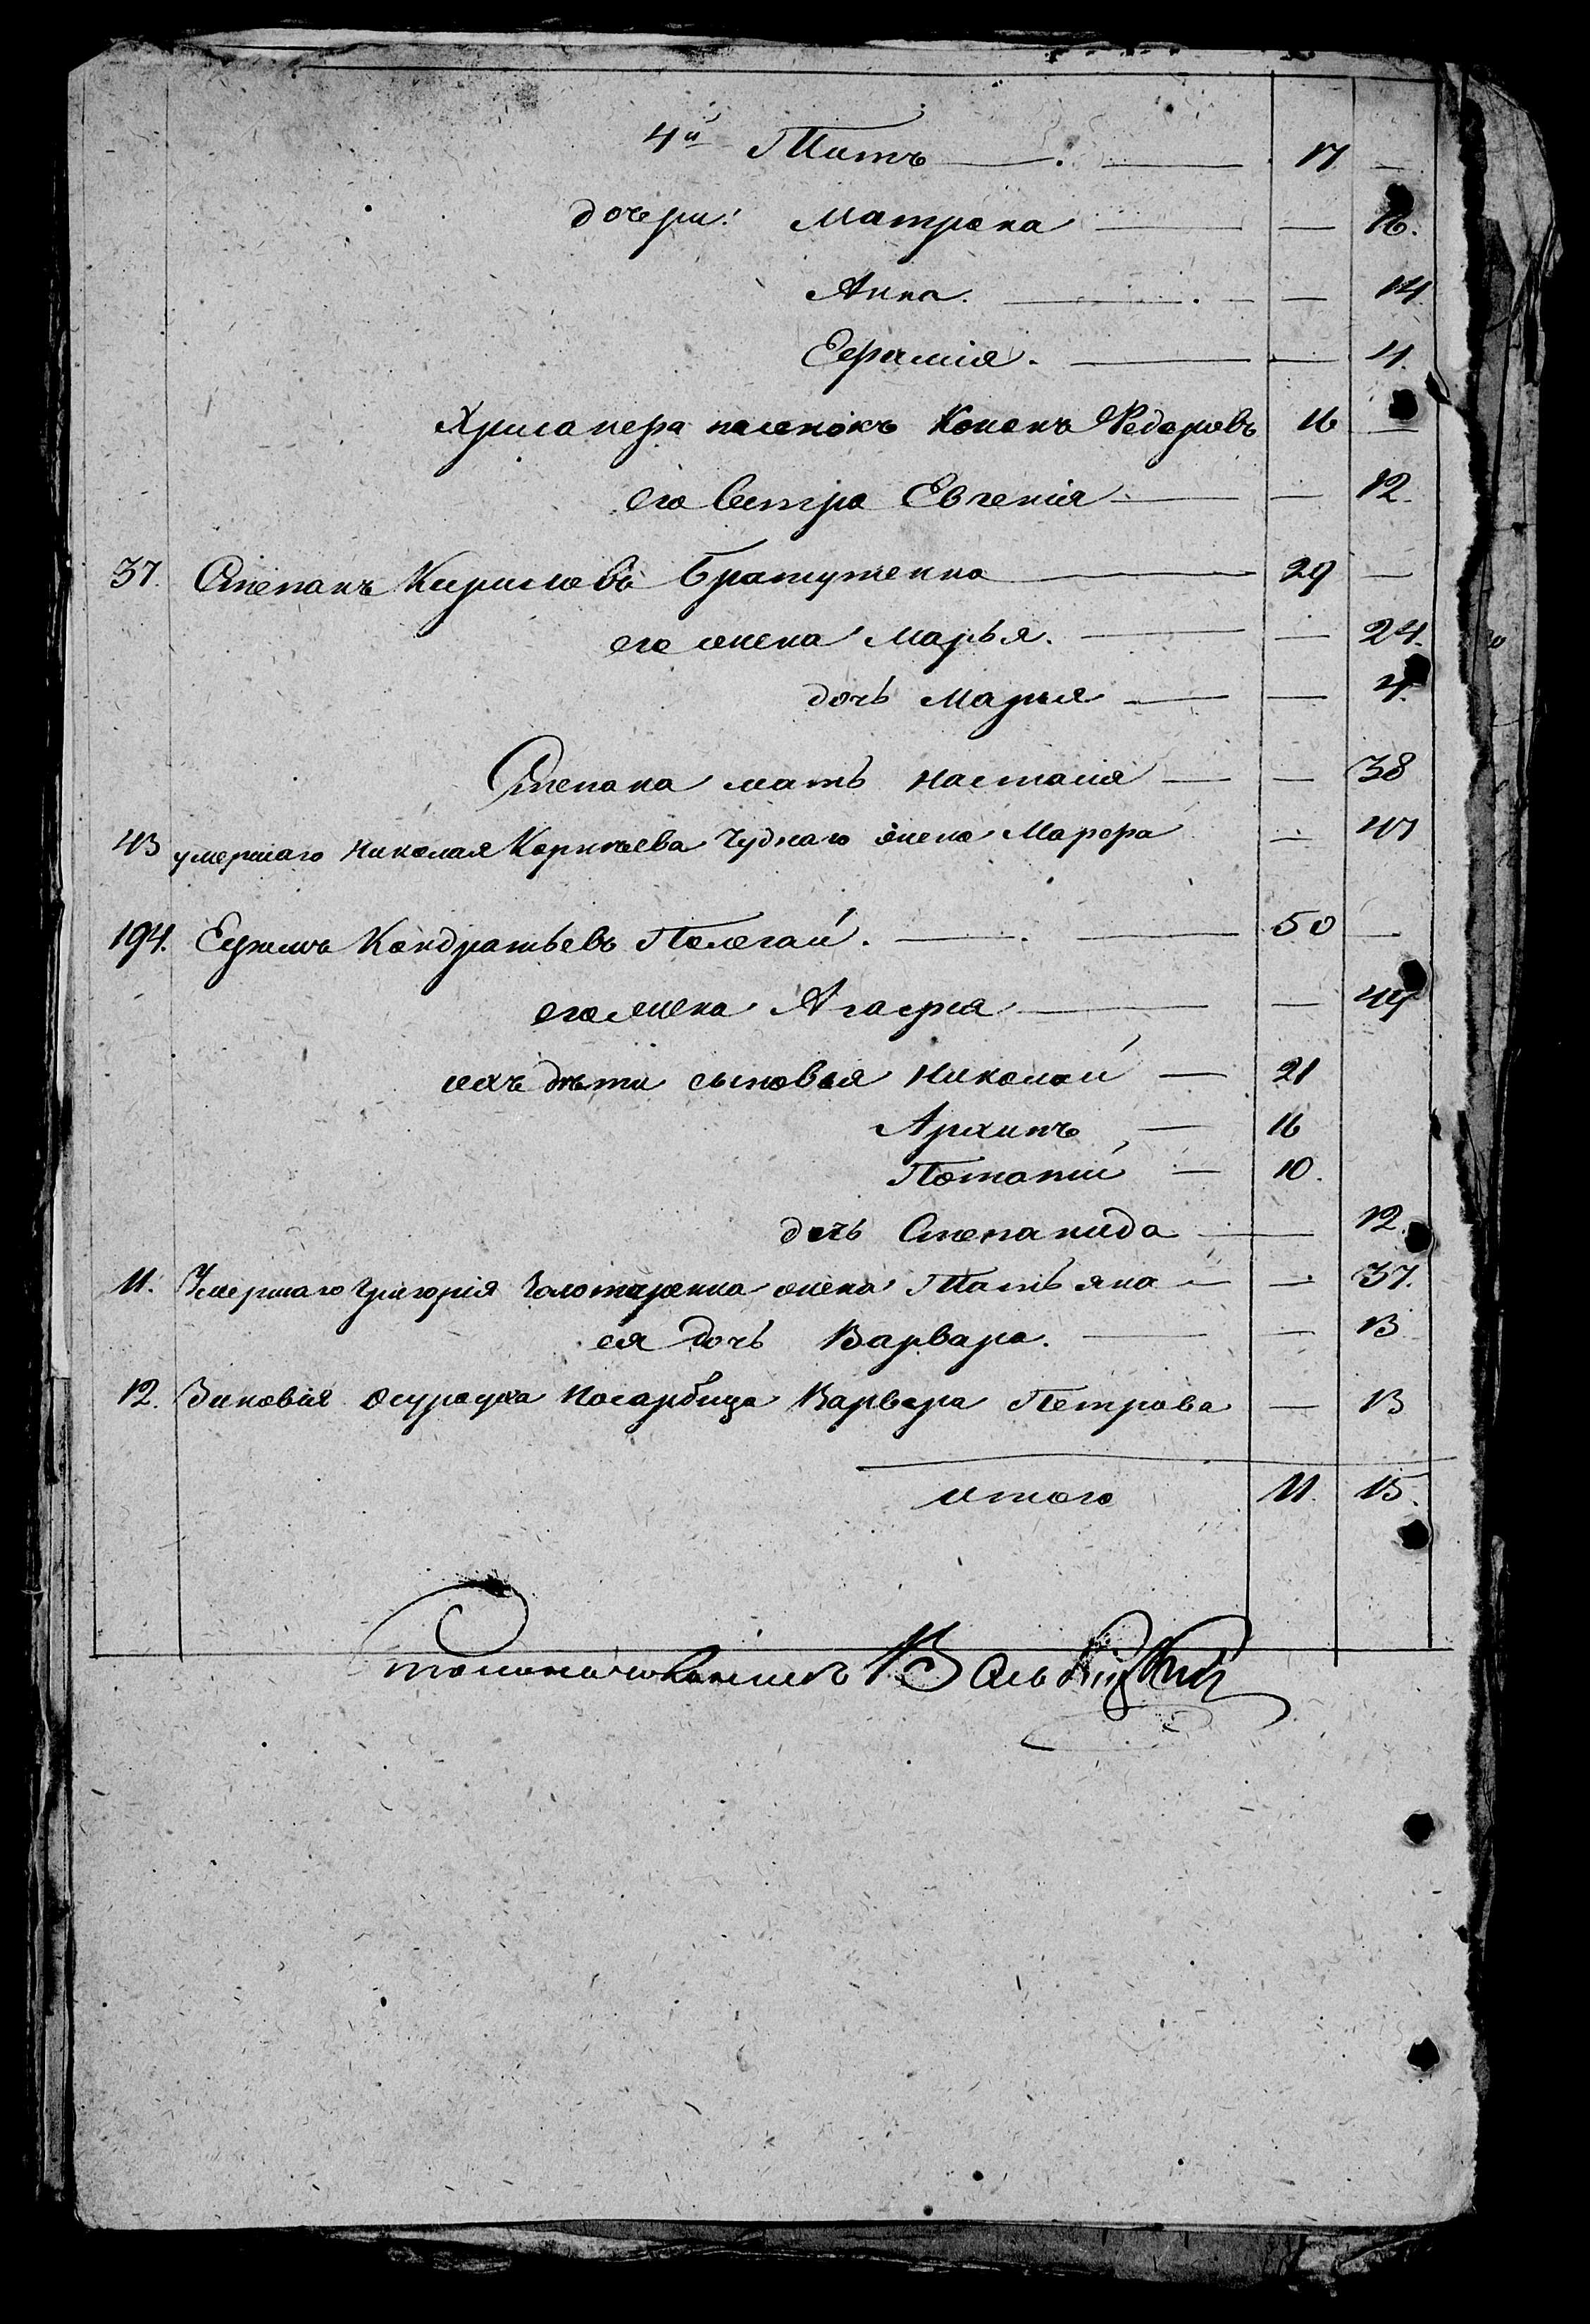 4й Титъ — 17 —
дочери: Матрона — — 16.
Анна. — — 14
Ефимія. — — 4.
Хрисанфа пасенокъ Кононъ Федоровъ 16 —
его сестра Евгенія — — 12.
37. Степанъ Кириловъ Братушенко — 29 —
его жена Марья. — — 24.
дочь Марья — — 4.
Степана мать Настасія — — 38
43 умершаго Николая Корнѣева Чуднаго жена Марфа — 47
194. Ефимъ Кондратьевъ Полегай. — 50 —
его жена Агафія — — 44
ихъ дѣти сыновья Николай — 21
Архипъ — 16
Потапій — 10.
дочь Степанида — 12.
11. Умершаго Григорія Золотаренка жена Татьяна — — 37.
ея дочь Варвара. — — 13
12. Зиновія Варвара Петрова — 13
итого 11. 15.